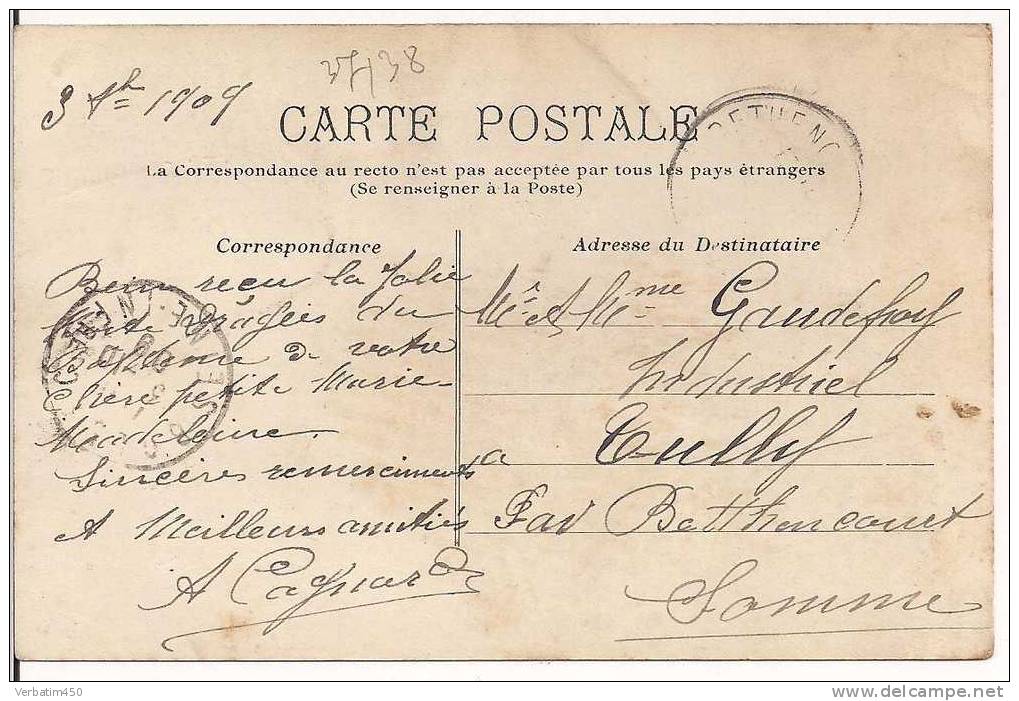 37438
3 1909
CARTE POSTALE
La Correspondance au recto n'est pas acceptée par tous les pays étrangers
(Se renseigner à la Poste)
BETHENC
Correspondance
Bien reçu la Jolie
dragées du
Baptême de votre
Chère petite Marie-
Madeleine.
Sincères remerciments
A Meilleurs amitiés
A Cagnard
Adresse du Destinataire
Mr A Mme Gaudefroy
Industriel
a Tully
Par Betthencourt
Somme
Verbatim450
delcampe.net